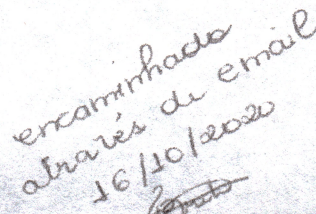 encaminhado
através de email
16/10/2020